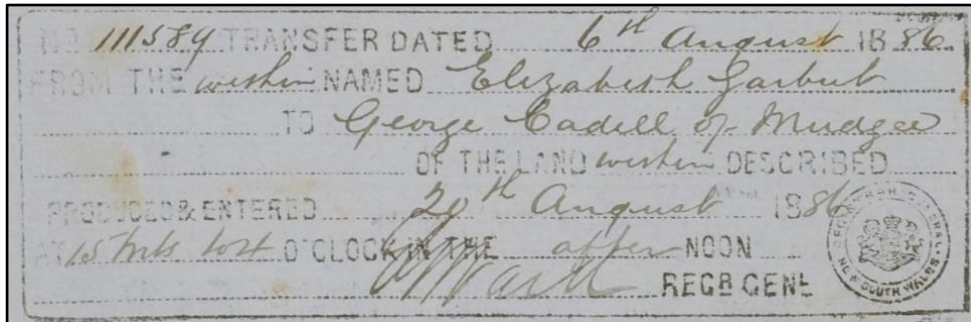 NO 111589 TRANSFER DATED 6th August 1886
FROM THE within NAMED Elizabeth Garbut
TO George Cadell of Mudgee
OF THE LAND within DESCRIBED
PRODUCED & ENTERED 20th August 1886
AT 15 mts to O'CLOCK IN THE after NOON
REGR GENL
REGISTRAR GENERAL NEW SOUTH WALES